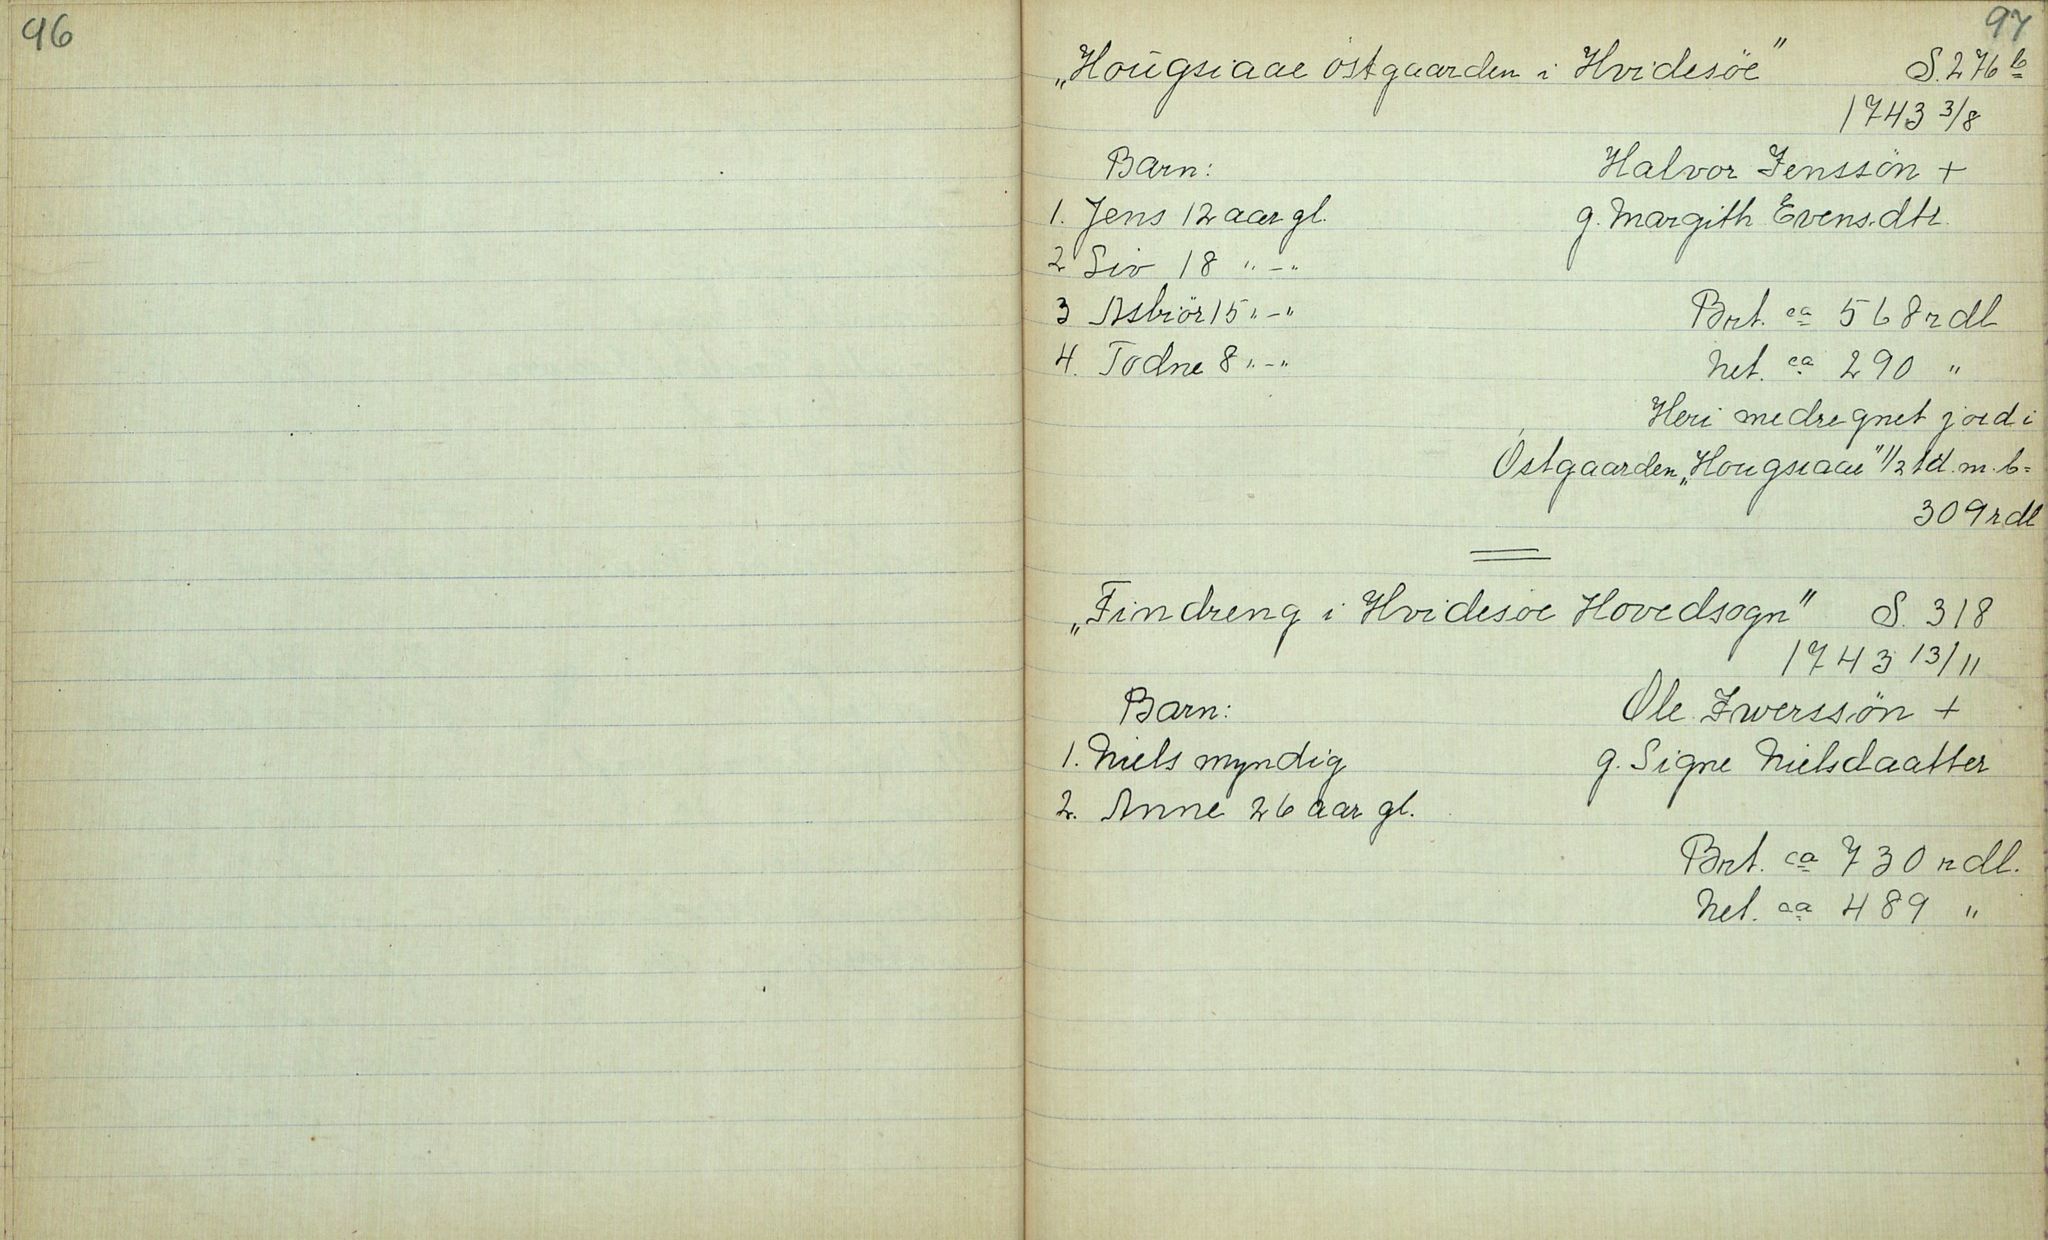 96
97
„Hougsiaae östgaarden i Hvidesöe" S. 276 b
1743 3/8
Barn: Halvor Jenssön +
1. Jens 12 aar gl. g. Margith Evens.dtr.
2 Siv 18 " - "
3 Asbiör 15 " - " Brt. ca 568 rdl
4. Todne 8 " - " Net. ca 290 "
Heri medregnet jord i
Östgaarden „Hougsiaae" 1/2 td. m. b =
309 rdl
„Findreng i Hvidesöe Hovedsogn" S. 318
1743 13/11
Barn: Ole Iwerssön +
1. Niels myndig g. Signe Nielsdaatter
2. Anne 26 aar gl.
Brt. ca 730 rdl.
Net. ca 489 "